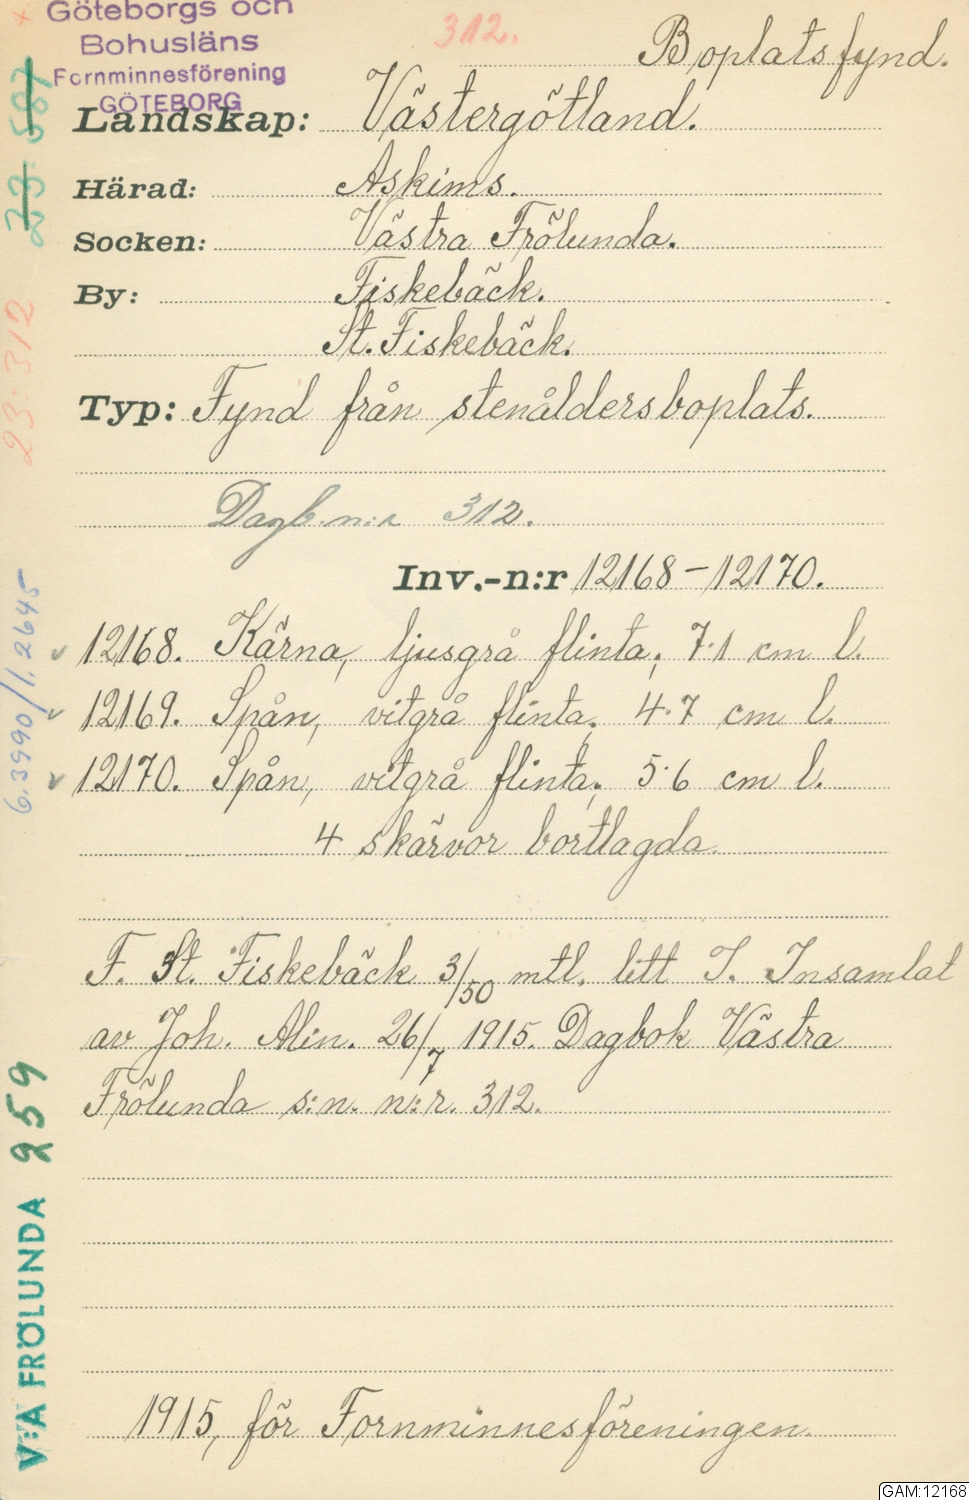 Göteborgs och
Bohusläns
Fornminnesförening
GÖTEBORG
312.
Boplatsfynd.
Landskap: Västergötland.
Härad: Askims.
Socken: Västra Frölunda.
By: Fiskebäck.
St. Fiskebäck.
Typ: Fynd från stenåldersboplats.
Dagb. n:r 312.
Inv.-n:r 12168-12170.
12168. Kärna, ljusgrå flinta; 7.1 cm l.
12169. Spån, vitgrå flinta; 4.7 cm l.
12170. Spån, vitgrå flinta; 5.6 cm l.
4 skärvor bortlagda.
F. St. Fiskebäck 3/50 mtl. litt I. Insamlat
av Joh. Alin. 26/7 1915. Dagbok Västra
Frölunda s:n. n:r. 312.
1915, för Fornminnesföreningen.
23:587
23:312
6.3990/1,2645
V:A FRÖLUNDA 259
GAM:12168